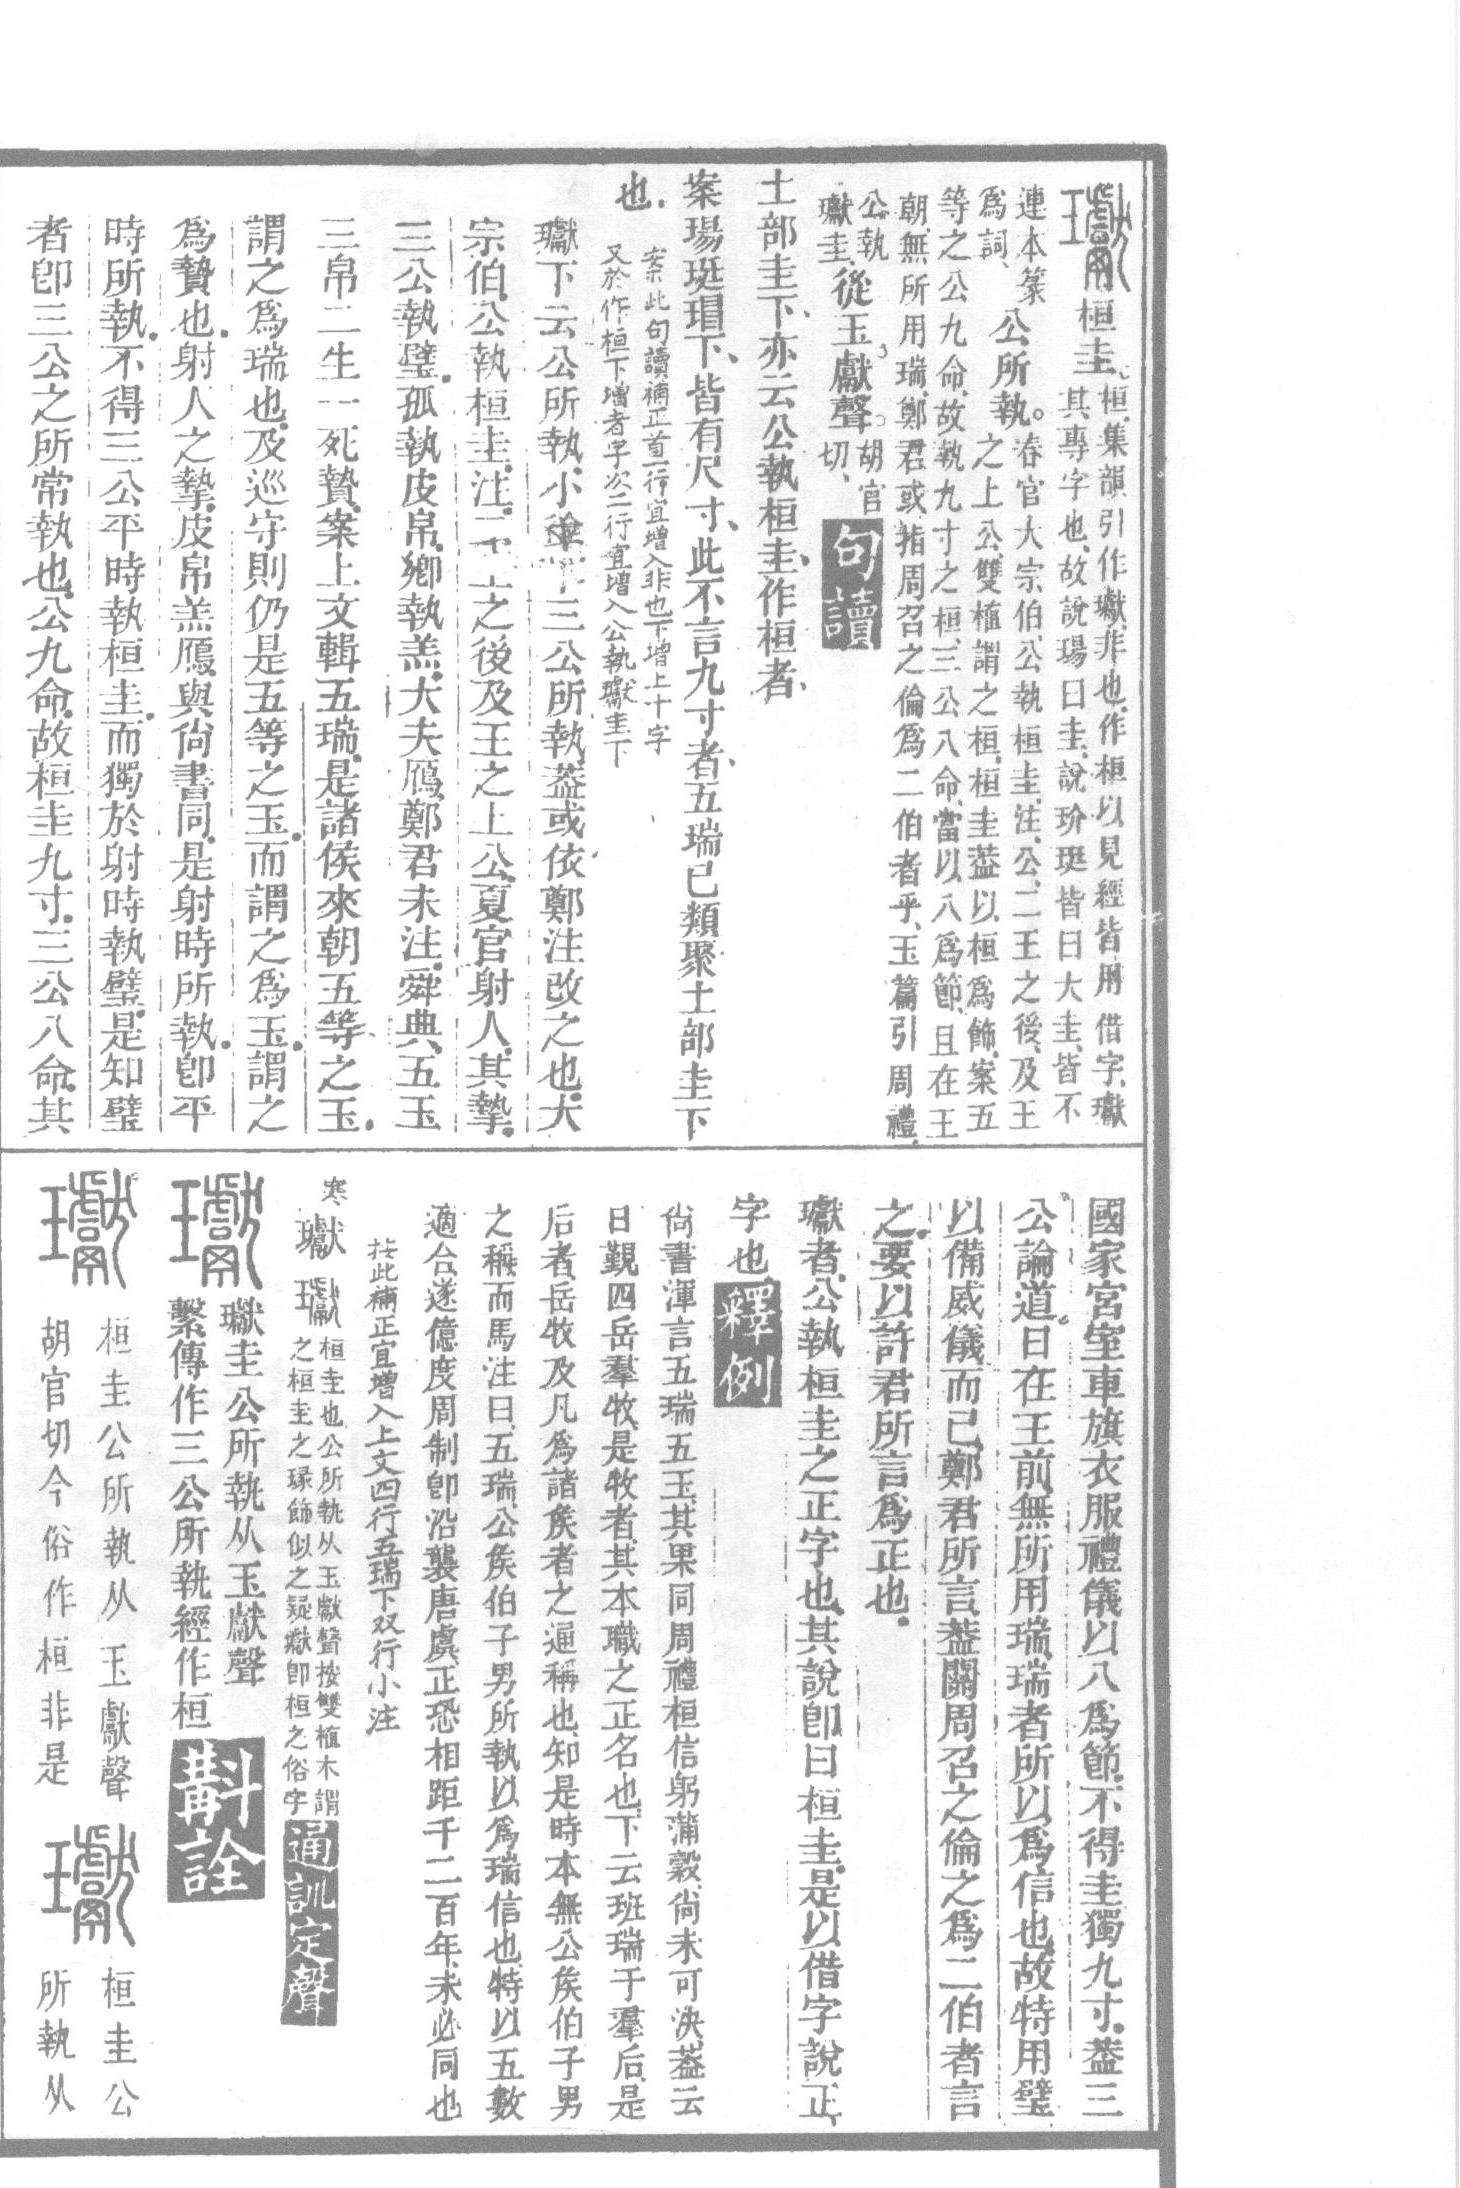 瓛桓圭
桓集韻引作瓛非也作桓以見經皆用借字瓛
其專字也故說瑒曰圭說玠珽皆曰大圭皆不
連本篆
爲詞
公所執
春官大宗伯公執桓圭注公二王之後及王
之上公雙植謂之桓桓圭葢以桓爲飾案五
等之公九命故執九寸之桓三公八命當以八爲節且在王
朝無所用瑞鄭君或指周召之倫爲二伯者乎玉篇引周禮
公執
瓛圭
從玉獻聲
胡官
切
句讀
土部圭下亦云公執桓圭作桓者
案瑒珽瑁下皆有尺寸此不言九寸者五瑞已類聚土部圭下
也
案此句讀補正首一行宜增入非也下增上十字
又於作桓下增者字次二行宜增入公執瓛圭下
瓛下云公所執小徐三公所執葢或依鄭注改之也大
宗伯公執桓圭注二王之後及王之上公夏官射人其摯
三公執璧孤執皮帛卿執羔大夫鴈鄭君未注舜典五玉
三帛二生一死贄案上文輯五瑞是諸侯來朝五等之玉
謂之爲瑞也及巡守則仍是五等之玉而謂之爲玉謂之
爲贄也射人之摯皮帛羔鴈與尙書同是射時所執卽平
時所執不得三公平時執桓圭而獨於射時執璧是知璧
者卽三公之所常執也公九命故桓圭九寸三公八命其
國家宮室車旗衣服禮儀以八爲節不得圭獨九寸葢三
公論道日在王前無所用瑞瑞者所以爲信也故特用璧
以備威儀而已鄭君所言葢關周召之倫之爲二伯者言
之要以許君所言爲正也
瓛者公執桓圭之正字也其說卽曰桓圭是以借字說正
字也
釋例
尙書渾言五瑞五玉其果同周禮桓信躬蒲穀尙未可決葢云
日覲四岳羣牧是牧者其本職之正名也下云班瑞于羣后是
后者岳牧及凡爲諸侯者之通稱也知是時本無公侯伯子男
之稱而馬注曰五瑞公侯伯子男所執以爲瑞信也特以五數
適合遂億度周制卽沿襲唐虞正恐相距千二百年未必同也
按此補正宜增入上文四行五瑞下双行小注
寒
瓛
瓛
桓圭也公所執从玉獻聲按雙植木謂
之桓圭之瑑飾似之疑瓛卽桓之俗字
通訓定聲
瓛
瓛圭公所執从玉獻聲
繫傳作三公所執經作桓
斠詮
瓛
桓圭公所執从玉獻聲
胡官切今俗作桓非是
瓛
桓圭公
所執从